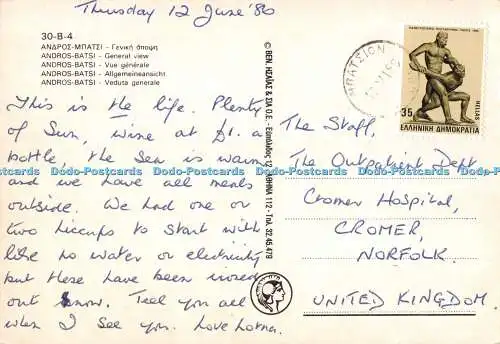 Thursday 12 June '86
30-B-4
ΑΝΔΡΟΣ-ΜΠΑΤΣΙ - Γενική άποψη
ANDROS-BATSI - General view
ANDROS-BATSI - Vue générale
ANDROS-BATSI - Allgemeineansicht
ANDROS-BATSI - Veduta generale
This is the life. Plenty
of Sun, wine at £1. a
bottle, the Sea is warm
and we have all meals
outside. We had one or
two hiccups to start with
like no water or electricity
but these have been ironed
out now. Tell you all
when I see you. Love Lorna.
© ΒΕΝ. ΗΣΑΪΑΣ & ΣΙΑ Ο.Ε. ΑΘΗΝΑΙ 112 - Τηλ. 32.45.478
ΜΠΑΤΣΙΟΝ
35
HELLAS
ΕΛΛΗΝΙΚΗ ΔΗΜΟΚΡΑΤΙΑ
The Staff,
The Outpatient Dept
Cromer Hospital,
CROMER,
NORFOLK.
UNITED KINGDOM.
Dodo-Postcards Dodo-Postcards Dodo-Postcards Dodo-Postcards Dodo-Postcards Dodo-Postcards